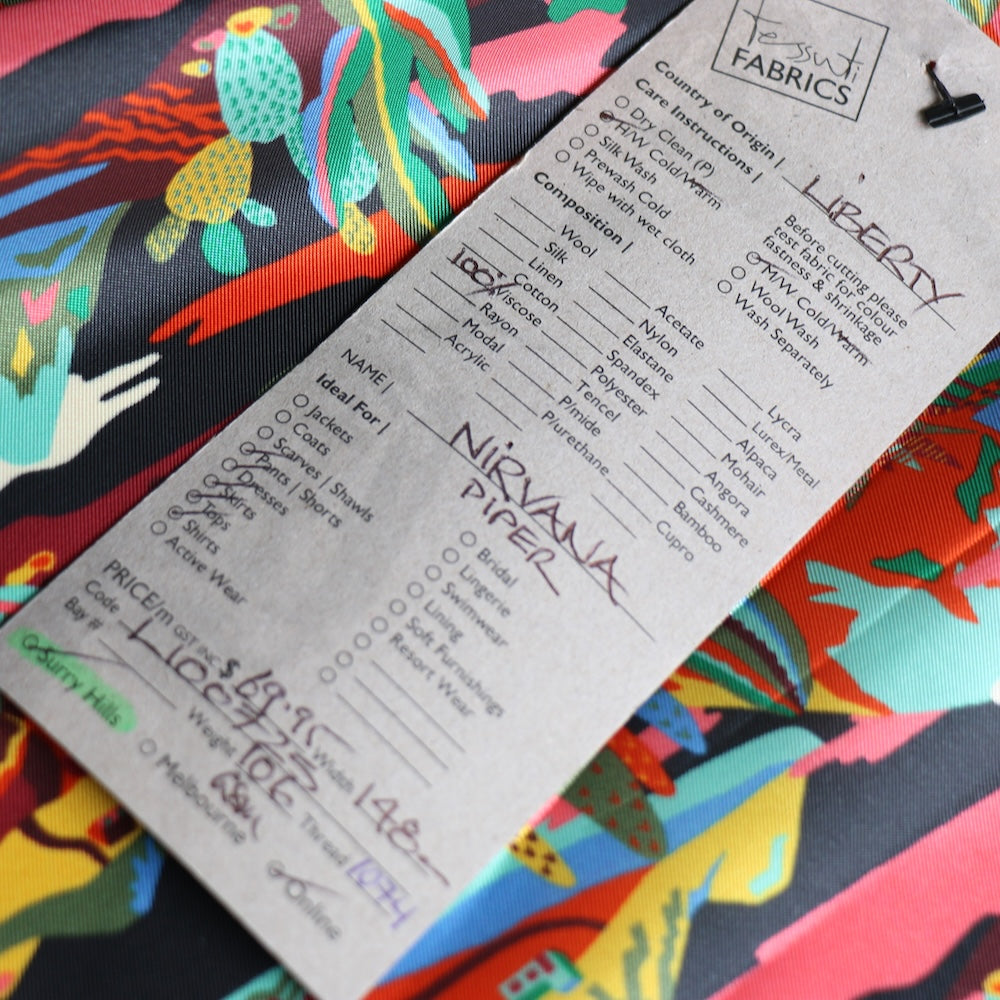 Tessuti
FABRICS
Country of Origin | LIBERTY
Care Instructions |
Dry Clean (P)
H/W Cold/Warm
Silk Wash
Prewash Cold
Wipe with wet cloth
Before cutting please
test fabric for colour
fastness & shrinkage
M/W Cold/Warm
Wool Wash
Wash Separately
Composition |
Wool
Silk
Linen
100% Cotton
Viscose
Rayon
Modal
Acrylic
Acetate
Nylon
Elastane
Spandex
Polyester
Tencel
P/mide
P/urethane
Lycra
Lurex/Metal
Alpaca
Mohair
Angora
Cashmere
Bamboo
Cupro
NAME | NIRVANA
PIPER
Ideal For |
Jackets
Coats
Scarves | Shawls
Pants | Shorts
Dresses
Skirts
Tops
Shirts
Active Wear
Bridal
Lingerie
Swimwear
Lining
Soft Furnishings
Resort Wear
PRICE/m GST INC $ 69.95 Width 148
Code
Bay # Weight Thread 1074
Surry Hills
Melbourne
Online